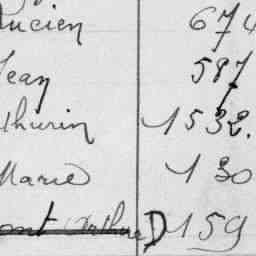 Lucien 674
Jean 587
thurin 1532.
Marie 130
ont Arthur D 159